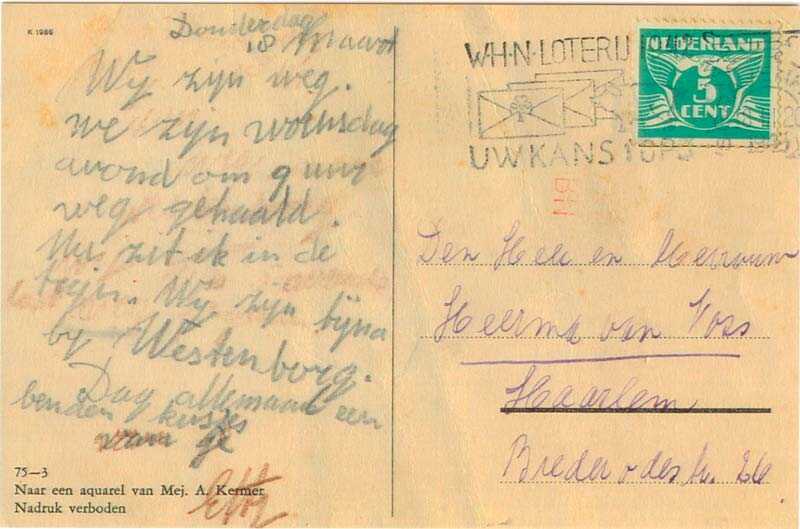 K 1986
Donderdag
18 Maart
Wij zijn weg.
we zijn woensdag
avond om 9 uur
weg gehaald.
Nu zit ik in de
trijn. Wij zijn bijna
bij Westenborg.
Dag allemaal een
benden kusjes
van je
Etty
75—3
Naar een aquarel van Mej. A. Kermer
Nadruk verboden
W·H·N·LOTERIJ
UW KANS
NEDERLAND
5
CENT
Den Heer en Mevrouw
Heerma van Voss
Haarlem
Brederodestr.